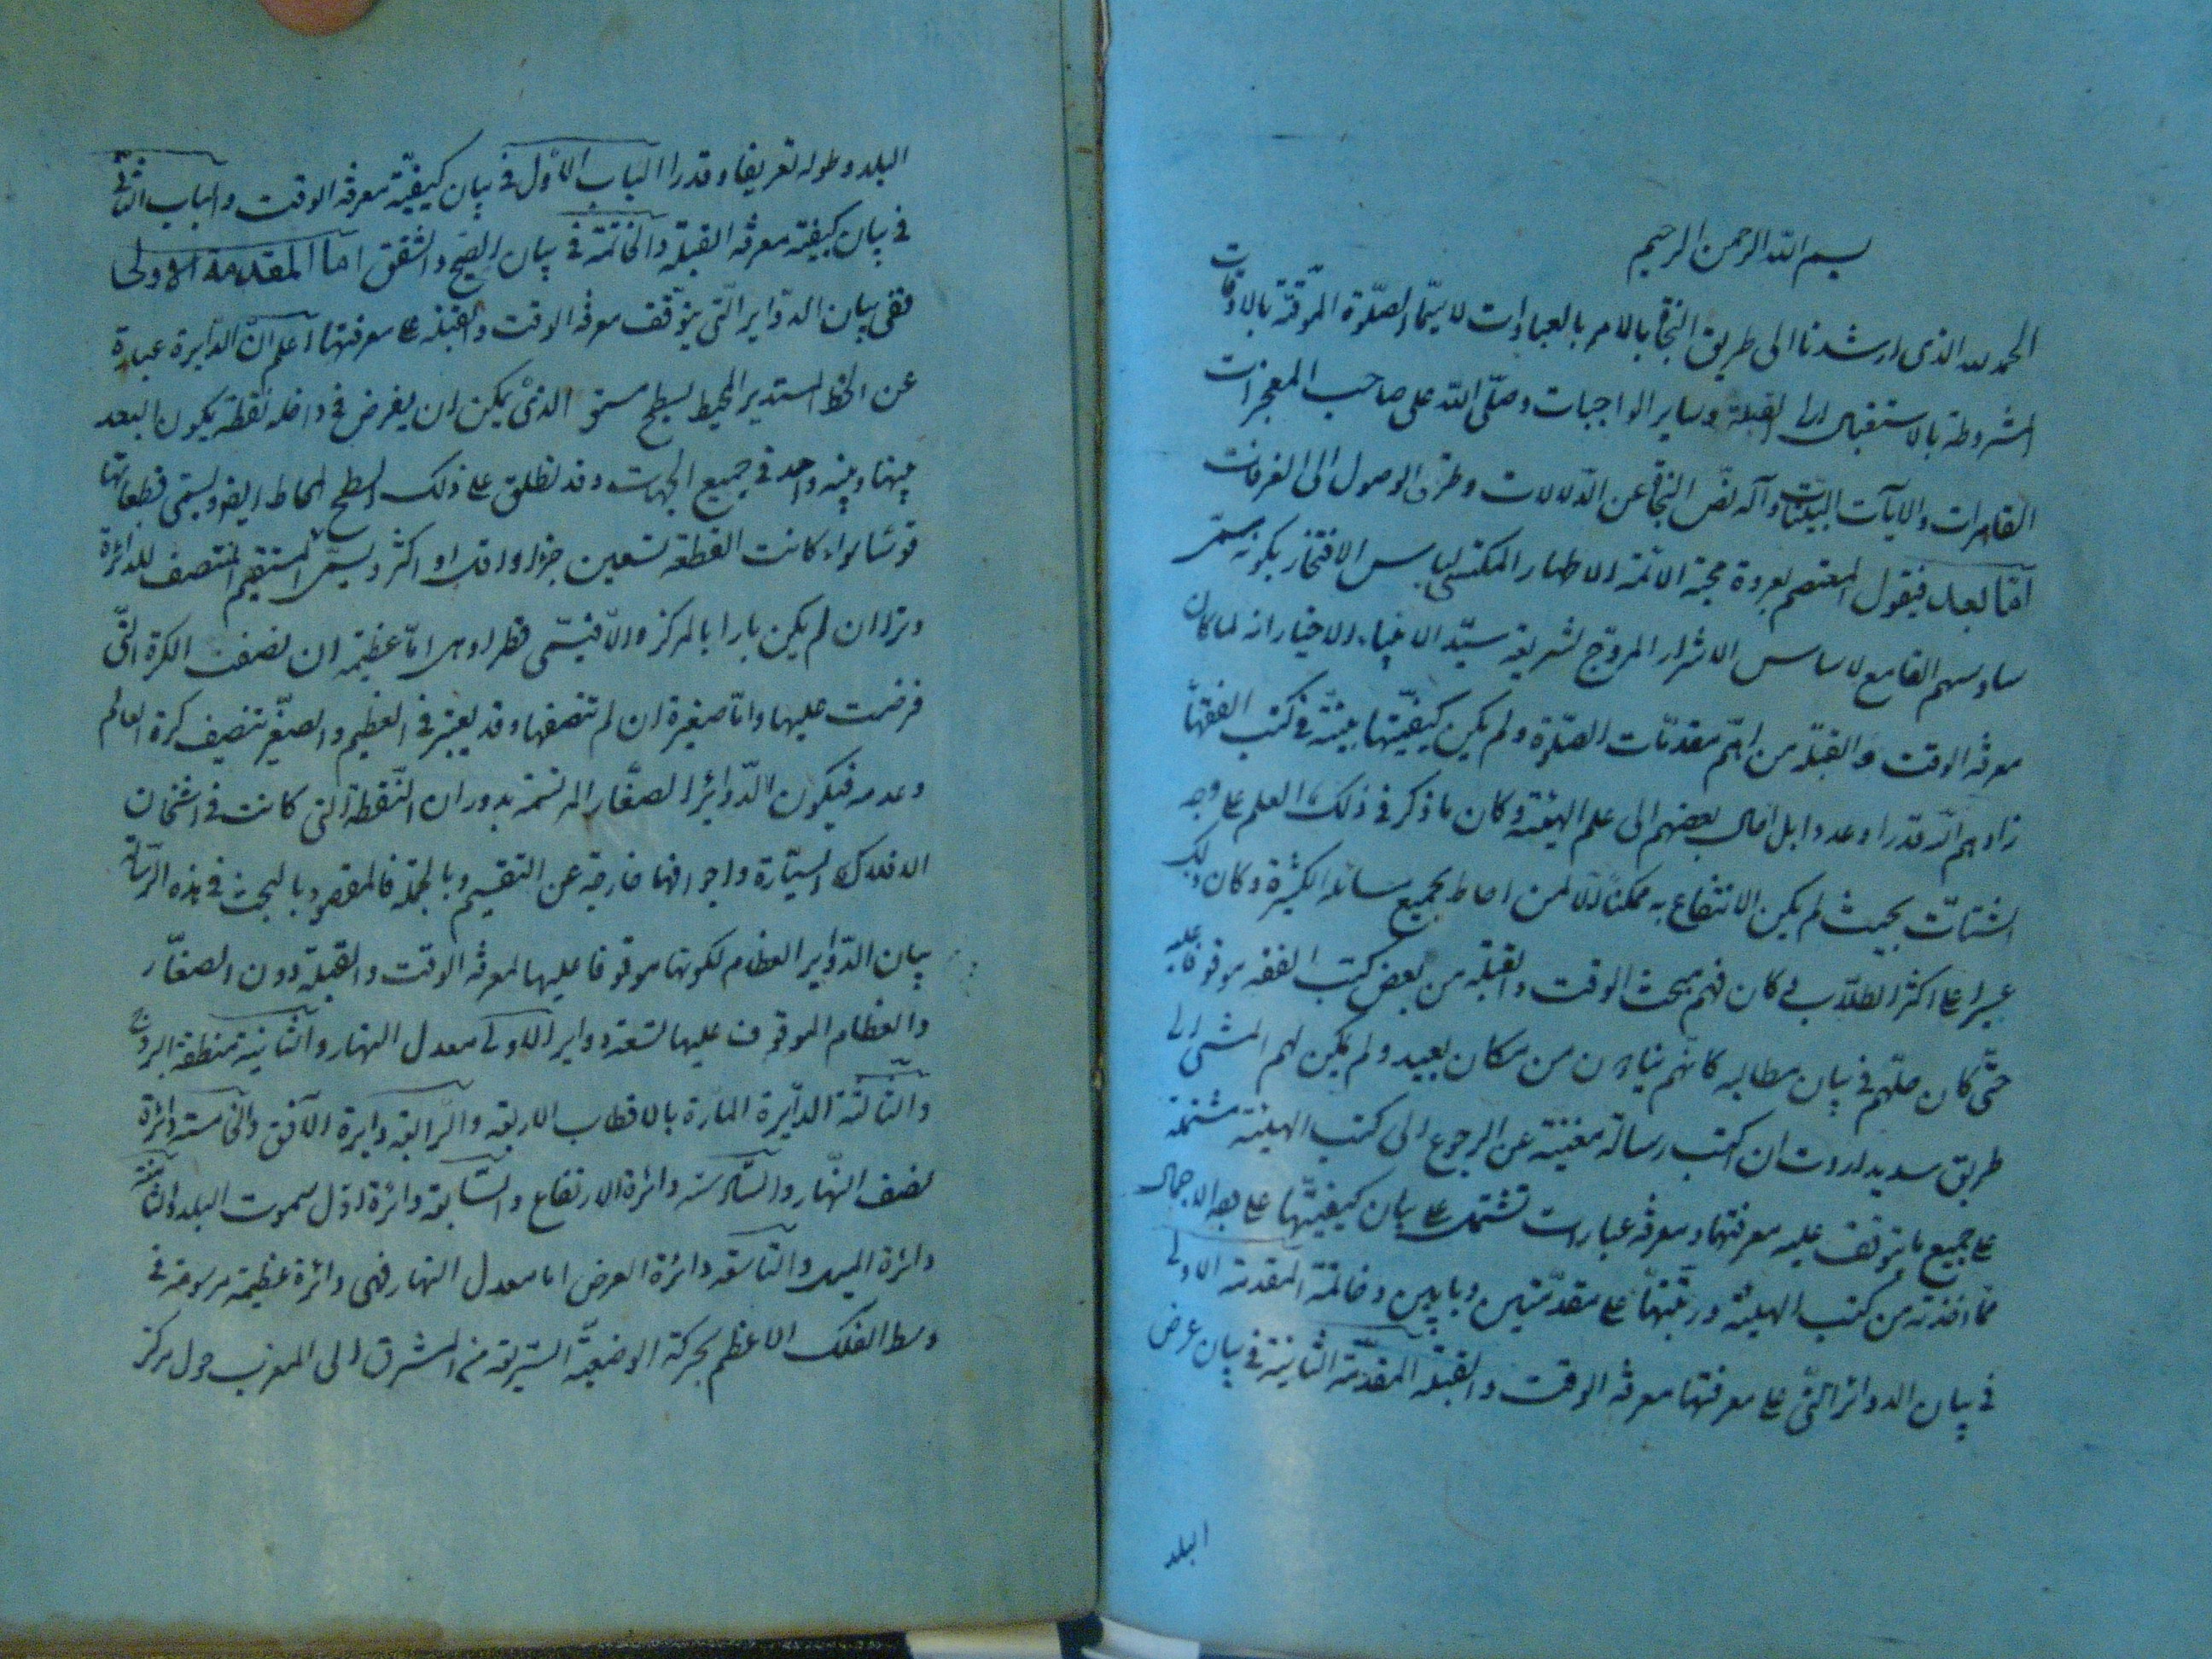 بسم الله الرحمن الرحيم
الحمد لله الذى ارشدنا الى طريق النجاة بالامر بالعبادات لا سيما الصلوة الموقتة بالاوقات
المشروطة بالاستقبال الى القبلة وساير الواجبات وصلى الله على صاحب المعجزات
القاهرات والايات البينات وآله نص النجاة عن الدلالات وطرق الوصول الى الغرفات
اما بعد فيقول المعتصم بعروة محبة الائمة الاطهار المكتسى لباس الافتخار بكونه سمى
سادسهم القامع لاساس الاشرار المروج لشريعة سيد الانبياء والاخيار انه لما كان
معرفة الوقت والقبلة من اهم مقدمات الصلوة ولم يكن كيفيتها مبينة فى كتب الفقهاء
زادهم الله قدرا وعددا بل احال بعضهم الى علم الهيئة وكان ما ذكر فى ذلك العلم على وجه
الشتات بحيث لم يكن الانتفاع به ممكنا الا لمن احاط بجميع مسائله الكثيرة وكان ذلك
عسيرا على اكثر الطلاب فى كان فهم مبحث الوقت والقبلة من بعض كتب الفقه موقوفا عليه
حتى كان حلهم فى بيان مطالبه كانهم ينادون من مكان بعيد ولم يكن لهم المشى الى
طريق سديد اردت ان اكتب رسالة مغنية عن الرجوع الى كتب الهيئة مشتملة
على جميع ما يتوقف عليه معرفتهما ومعرفة عبارات تشتمل على بيان كيفيتهما على وجه الاجمال
مما اخذته من كتب الهيئة ورتبتها على مقدمتين وبابين وخاتمة المقدمة الاولى
فى بيان الدوائر التى على معرفتها معرفة الوقت والقبلة المقدمة الثانية فى بيان عرض
البلد
البلد وطوله تعريفا وقدرا الباب الاول فى بيان كيفية معرفة الوقت والباب الثانى
فى بيان كيفية معرفة القبلة والخاتمة فى بيان الصبح والشفق اما المقدمة الاولى
ففى بيان الدواير التى يتوقف معرفة الوقت والقبلة على معرفتها اعلم ان الدايرة عبارة
عن الخط المستدير المحيط بسطح مستو الذى يمكن ان يفرض فى داخله نقطة يكون البعد
بينها وبينه واحد فى جميع الجهات وقد تطلق على ذلك السطح المحاط ايضا ويسمى قطعاتها
قوسا سواء كانت القطعة تسعين جزءا او اقل او اكثر ويسمى المستقيم المنتصف للدائرة
وترا ان لم يكن مارا بالمركز والا فيسمى قطرا وهى اما عظيمة ان نصفت الكرة التى
فرضت عليها واما صغيرة ان لم تنصفها وقد يعتبر فى العظيم والصغير تنصيف كرة العالم
وعدمه فيكون الدوائر الصغار المرتسمة بدوران النقطة التى كانت فى اثخان
الافلاك السيارة واجرافها خارجة عن التقسيم وبالجملة فالمقصود بالبحث فى هذه الرسالة
بيان الدواير العظام لكونها موقوفا عليها لمعرفة الوقت والقبلة دون الصغار
والعظام الموقوف عليها تسعة دواير الاولى معدل النهار والثانية منطقة البروج
والثالثة الدايرة المارة بالاقطاب الاربعة والرابعة دايرة الآفق والخامسة دائرة
نصف النهار والسادسة دائرة الارتفاع والسابعة دائرة اول سموت البلد والثامنة
دائرة الميل والتاسعة دائرة العرض اما معدل النهار فهى دائرة عظيمة مرسومة فى
وسط الفلك الاعظم بحركة الوضعية السريعة من المشرق الى المغرب حول مركز